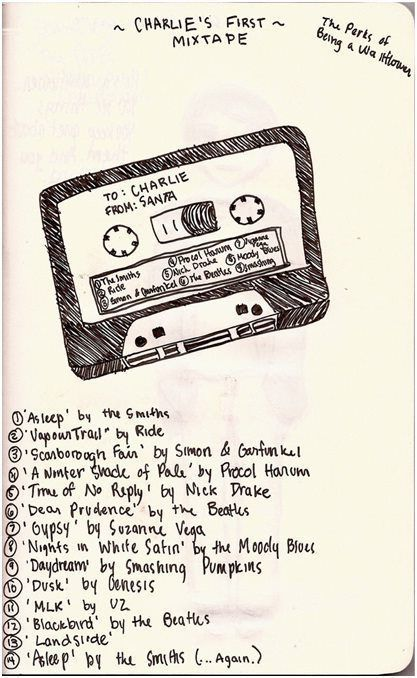 ~ CHARLIE'S FIRST ~
MIXTAPE
The Perks of
Being a Wallflower
TO: CHARLIE
FROM: SANTA
① The Smiths
② Ride
③ Simon & Garfunkel
④ Procol Harum
⑤ Nick Drake
⑥ The Beatles
⑦ Suzanne Vega
⑧ Moody Blues
⑨ Smashing
① 'Asleep' by the Smiths
② 'Vapour Trail" by Ride
③ 'Scarborough Fair' by Simon & Garfunkel
④ 'A Winter Shade of Pale' by Procol Harum
⑤ 'Time of No Reply' by Nick Drake
⑥ 'Dear Prudence' by the Beatles
⑦ 'Gypsy' by Suzanne Vega
⑧ 'Nights in White Satin' by the Moody Blues
⑨ 'Daydream' by Smashing Pumpkins
⑩ 'Dusk' by Genesis
⑪ 'MLK' by U2
⑫ 'Blackbird' by the Beatles
⑬ 'Landslide'
⑭ 'Asleep' by the Smiths (...Again.)